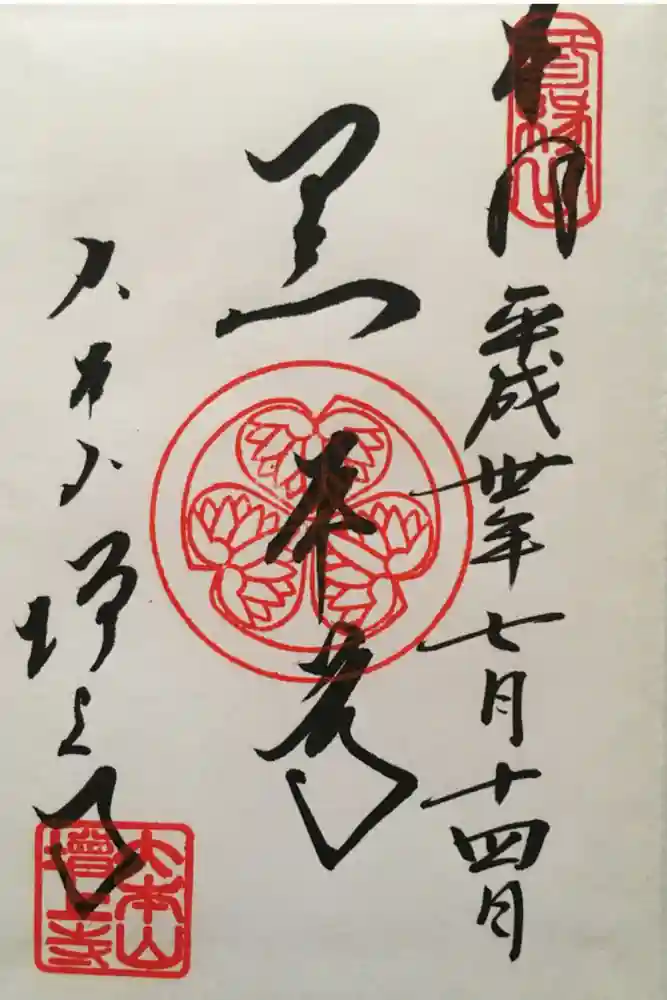 奉拝
平成丗年七月十四日
黒本尊
大本山増上寺
大本山
增上寺